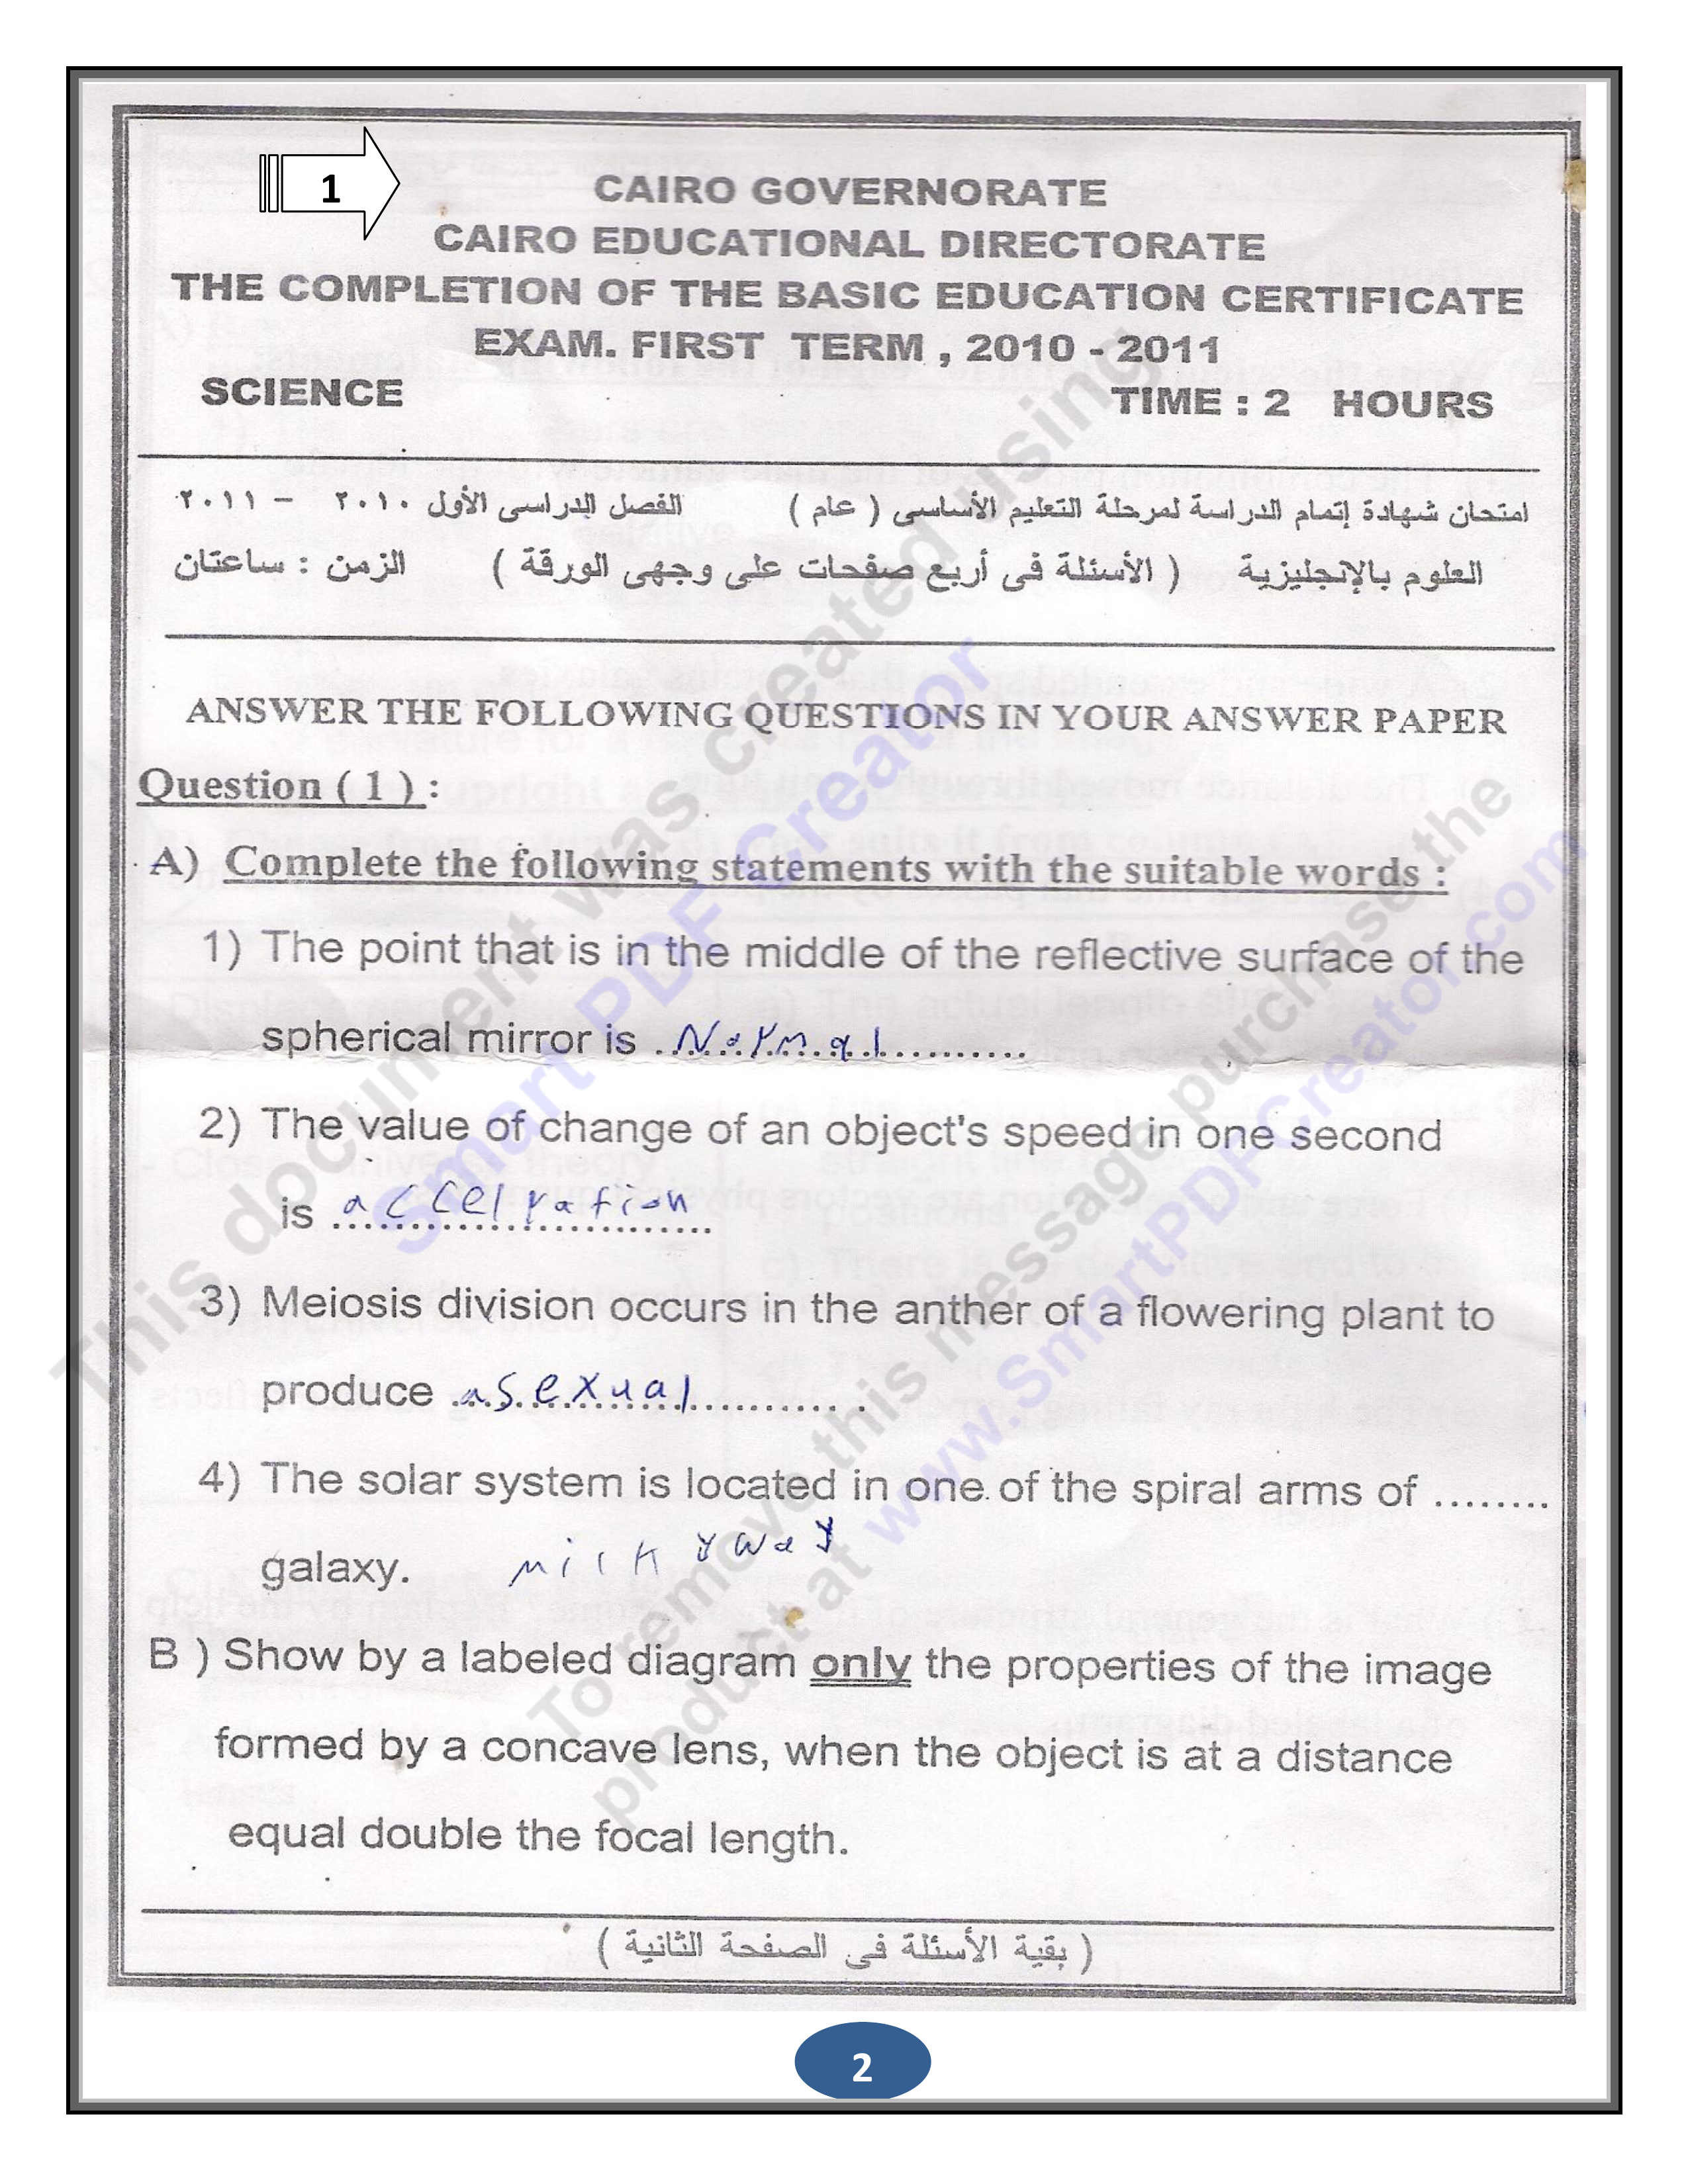 1
CAIRO GOVERNORATE
CAIRO EDUCATIONAL DIRECTORATE
THE COMPLETION OF THE BASIC EDUCATION CERTIFICATE
EXAM. FIRST TERM , 2010 - 2011
SCIENCE TIME : 2 HOURS
امتحان شهادة إتمام الدراسة لمرحلة التعليم الأساسى ( عام ) الفصل الدراسى الأول ٢٠١٠ – ٢٠١١
العلوم بالإنجليزية ( الأسئلة فى أربع صفحات على وجهى الورقة ) الزمن : ساعتان
ANSWER THE FOLLOWING QUESTIONS IN YOUR ANSWER PAPER
Question ( 1 ) :
A) Complete the following statements with the suitable words :
1) The point that is in the middle of the reflective surface of the
spherical mirror is ..Normal..........
2) The value of change of an object's speed in one second
is accelration
3) Meiosis division occurs in the anther of a flowering plant to
produce asexual.......... .
4) The solar system is located in one of the spiral arms of ........
galaxy. milkyway
B ) Show by a labeled diagram only the properties of the image
formed by a concave lens, when the object is at a distance
equal double the focal length.
( بقية الأسئلة فى الصفحة الثانية )
2
This document was created using
Smart PDF Creator
To remove this message purchase the
product at www.SmartPDFCreator.com